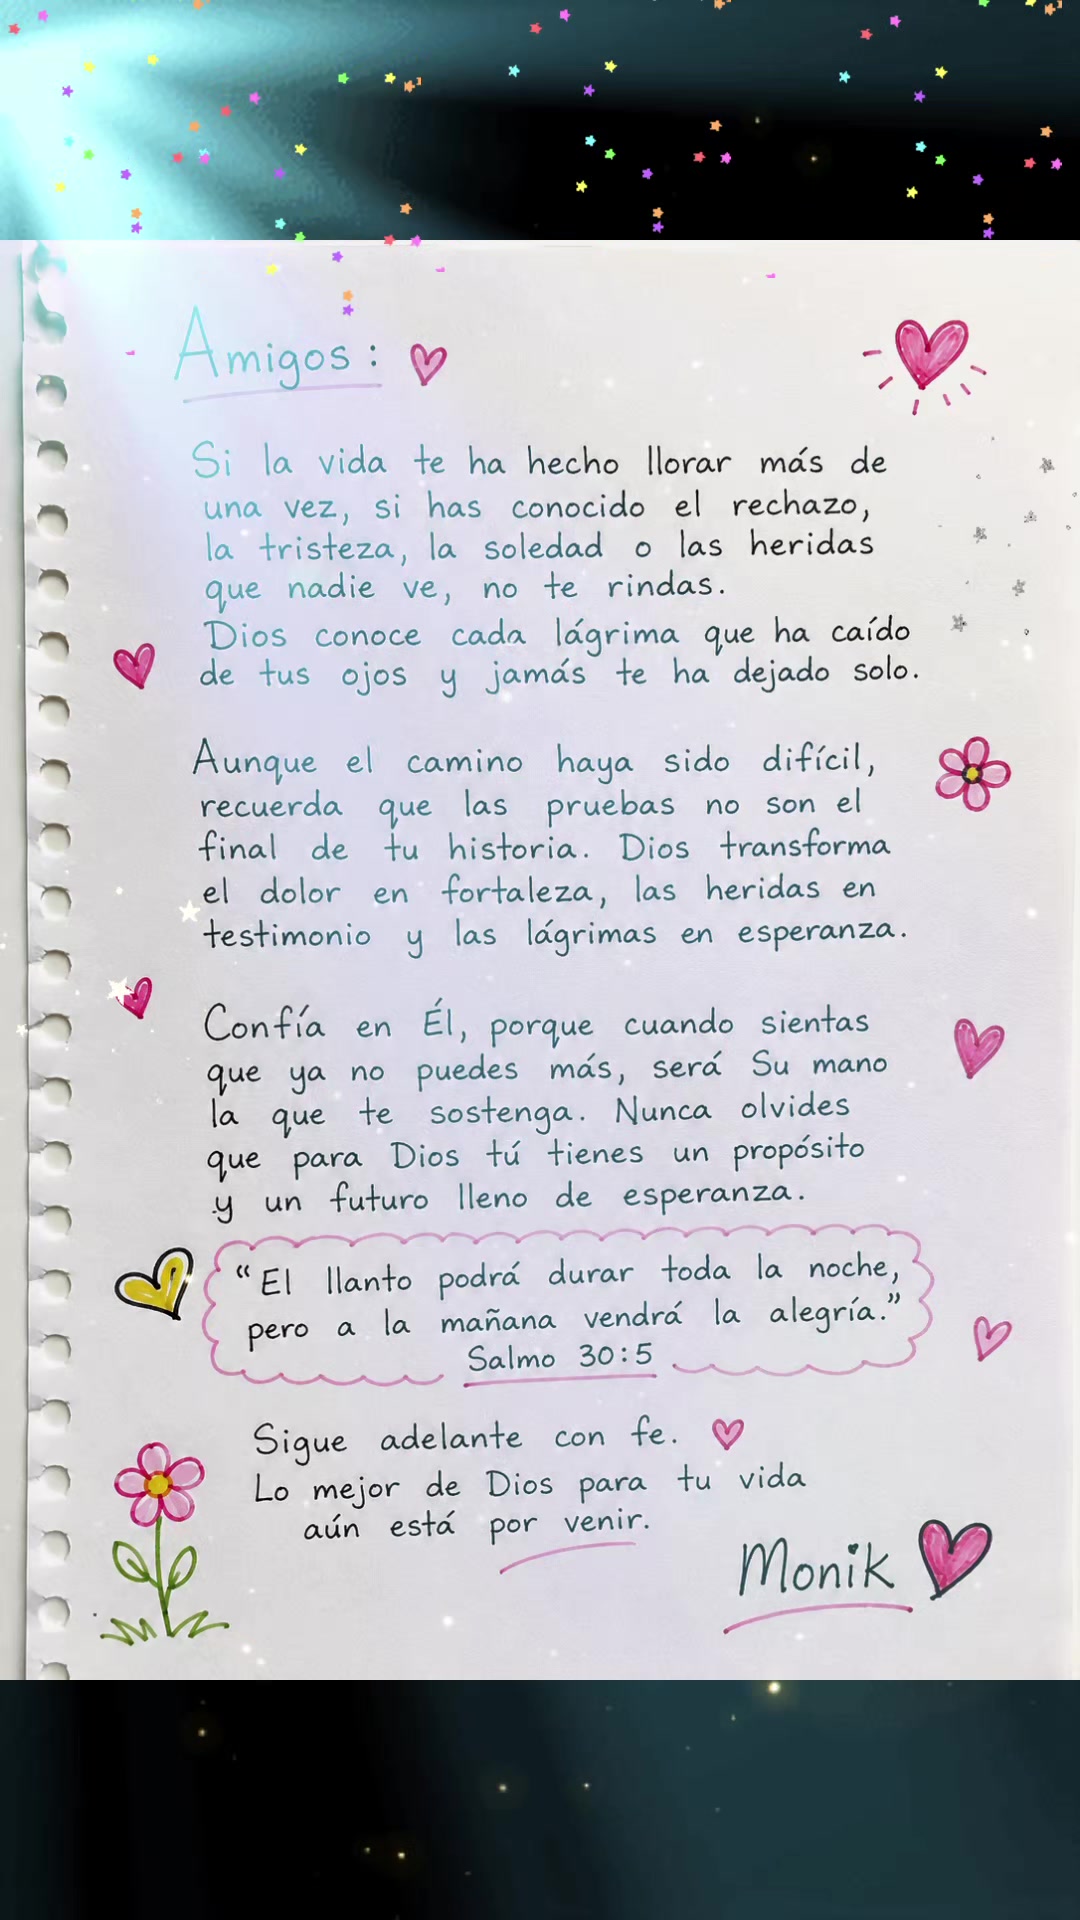 Amigos:
Si la vida te ha hecho llorar más de
una vez, si has conocido el rechazo,
la tristeza, la soledad o las heridas
que nadie ve, no te rindas.
Dios conoce cada lágrima que ha caído
de tus ojos y jamás te ha dejado solo.
Aunque el camino haya sido difícil,
recuerda que las pruebas no son el
final de tu historia. Dios transforma
el dolor en fortaleza, las heridas en
testimonio y las lágrimas en esperanza.
Confía en Él, porque cuando sientas
que ya no puedes más, será Su mano
la que te sostenga. Nunca olvides
que para Dios tú tienes un propósito
y un futuro lleno de esperanza.
"El llanto podrá durar toda la noche,
pero a la mañana vendrá la alegría."
Salmo 30:5
Sigue adelante con fe.
Lo mejor de Dios para tu vida
aún está por venir.
Monik